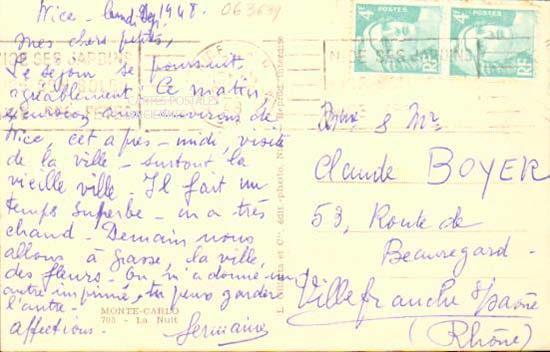 Nice - Lundi 1948. 063639
mes chers petits,
Le séjour se poursuit
agréablement. Ce matin
excursion aux environs de
Nice, cet après-midi, visite
de la ville - surtout la
vieille ville. Il fait un
temps superbe - on a très
chaud - Demain nous
allons à Grasse, la ville,
des fleurs - On m'a donné un
autre imprimé, tu peux garder
l'autre -
affections - Germaine
MONTE-CARLO
705 - La Nuit
CARTES POSTALES
4F RF
4F RF
& Mr
Claude BOYER
53, Route de
Beauregard -
Villefranche s/Saône
(Rhône)